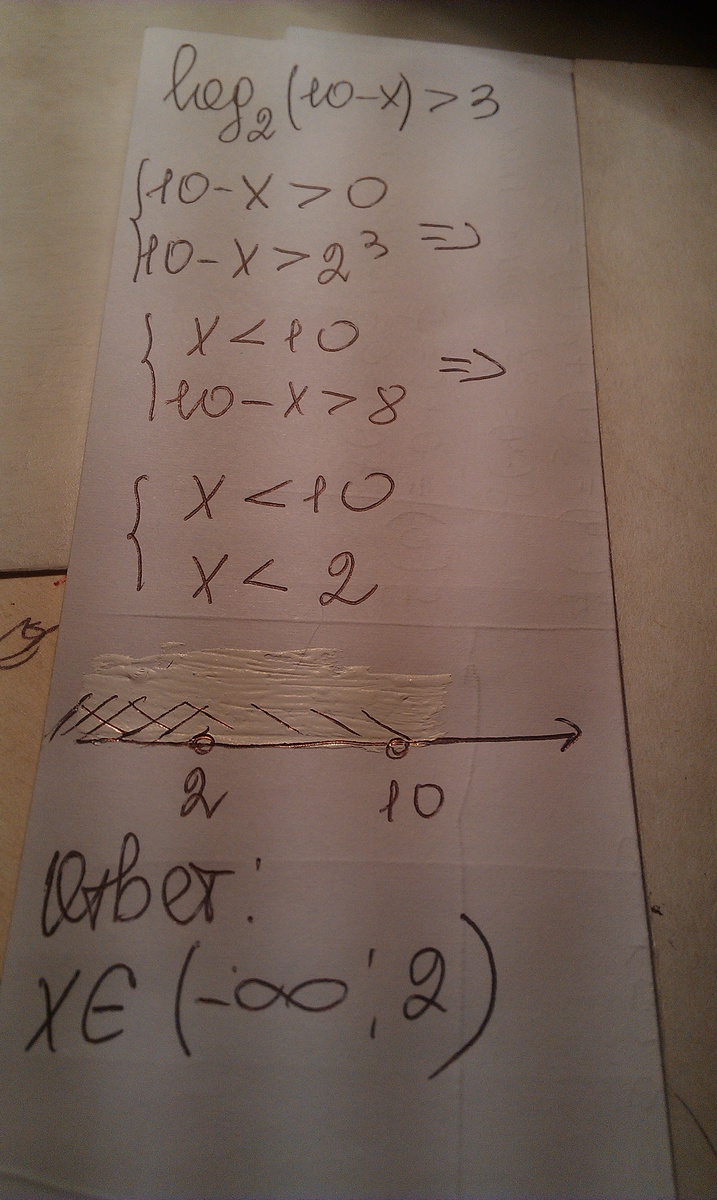 log₂(10-x)>3
{10-x>0
{10-x>2³ =>
{x<10
{10-x>8 =>
{x<10
{x<2
2 10
Ответ:
x∈(-∞;2)